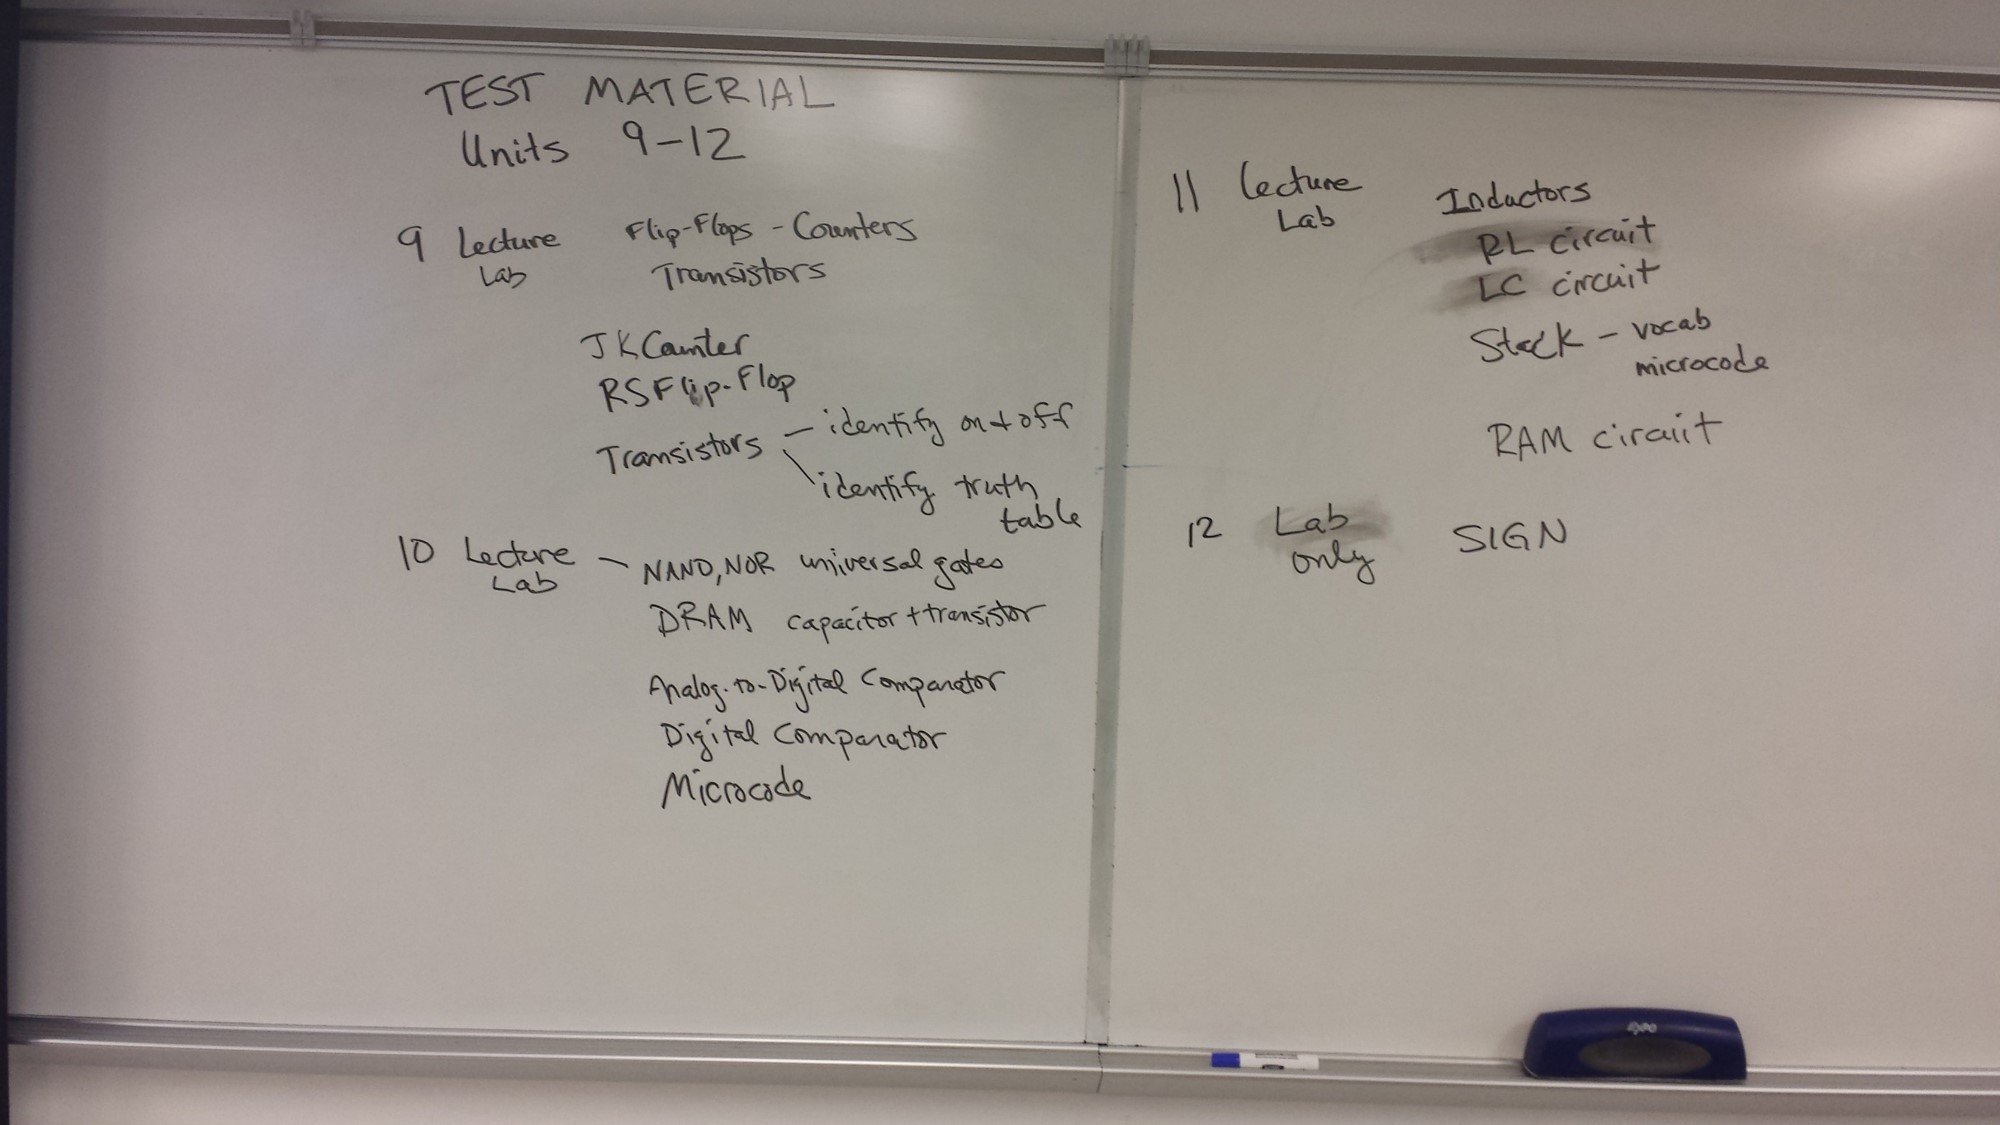 TEST MATERIAL
Units 9-12
9 Lecture Flip-Flops - Counters
Lab Transistors
JK Counter
RS Flip-Flop
Transistors - identify on + off
identify truth
table
10 Lecture - NAND, NOR universal gates
Lab
DRAM capacitor + transistor
Analog-to-Digital Comparator
Digital Comparator
Microcode
11 Lecture Inductors
Lab
RL circuit
LC circuit
Stack - vocab
microcode
RAM circuit
12 Lab SIGN
only
expo